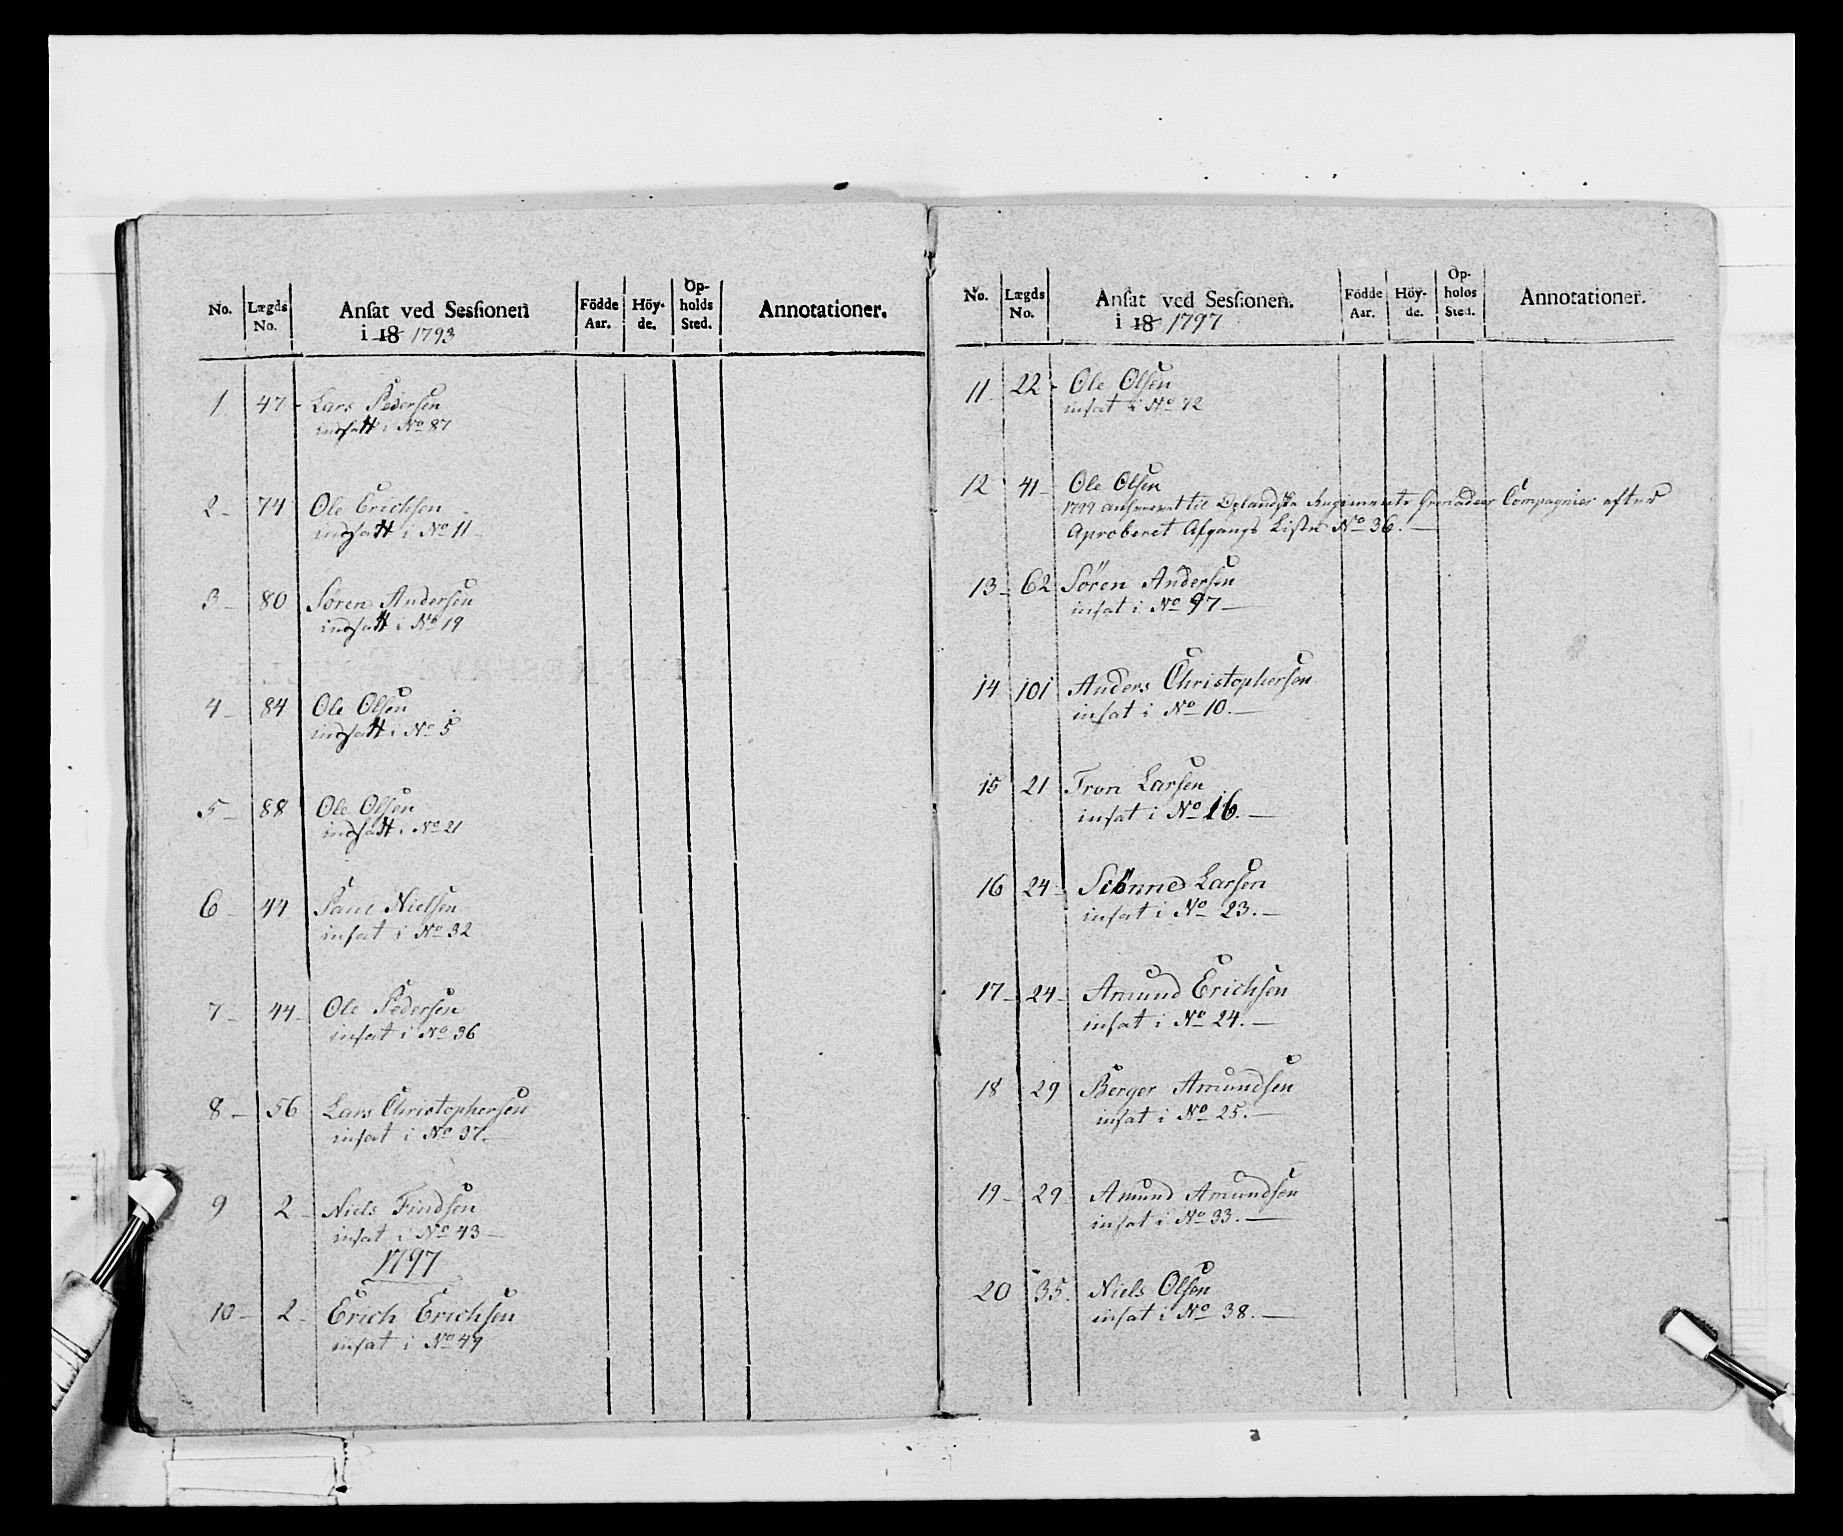 No. Lægds No. Ansat ved Sessionen i 18 1793 Födde Aar. Höy-de. Op-holds Sted. Annotationer.
1 47 - Lars Pedersen
indsatt i No 87
2 - 74 Ole Erichsen
indsatt i No 11
3 - 80 Søren Andersen
indsatt i No 19
4 - 84 Ole Olsen
indsatt i No 5
5 - 88 Ole Olsen
indsatt i No 21
6 - 44 Paul Nielsen
insat i No 32
7 - 44 - Ole Pedersen
insat i No 36
8 - 56 Lars Christophersen
insat i No 37. -
9 2 - Niels Findsen
insat i No 43 -
1797
10 - 2 - Erich Erichsen
insat i No 49
No. Lægds No. Ansat ved Sessionen. i 18 1797 Födde Aar. Höy-de. Op-holds Sted. Annotationer.
11 22 - Ole Olsen
insat i No 72
12 41 - Ole Olsen
1799 til Regiments Grenadeer Compagnier efter
Aproberet Afgangs Liste No 36. -
13 - 62 Søren Andersen
insat i No 97 -
14 101 Anders Christophersen
insat i No 10. -
15 21 Tron Larsen
insat i No 16. -
16 24 - Siönne Larsen
insat i No 23. -
17 - 24 - Amund Erichsen
insat i No 24. -
18 29 Berger Amundsen
insat i No 25. -
19 - 29 Amund Amundsen
insat i No 33. -
20 35. Niels Olsen
insat i No 38. -